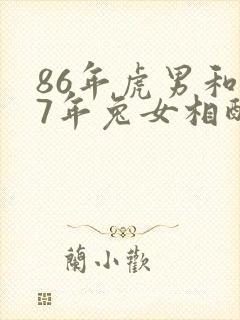 86年虎男和
7年兔女相配
蘭小歡